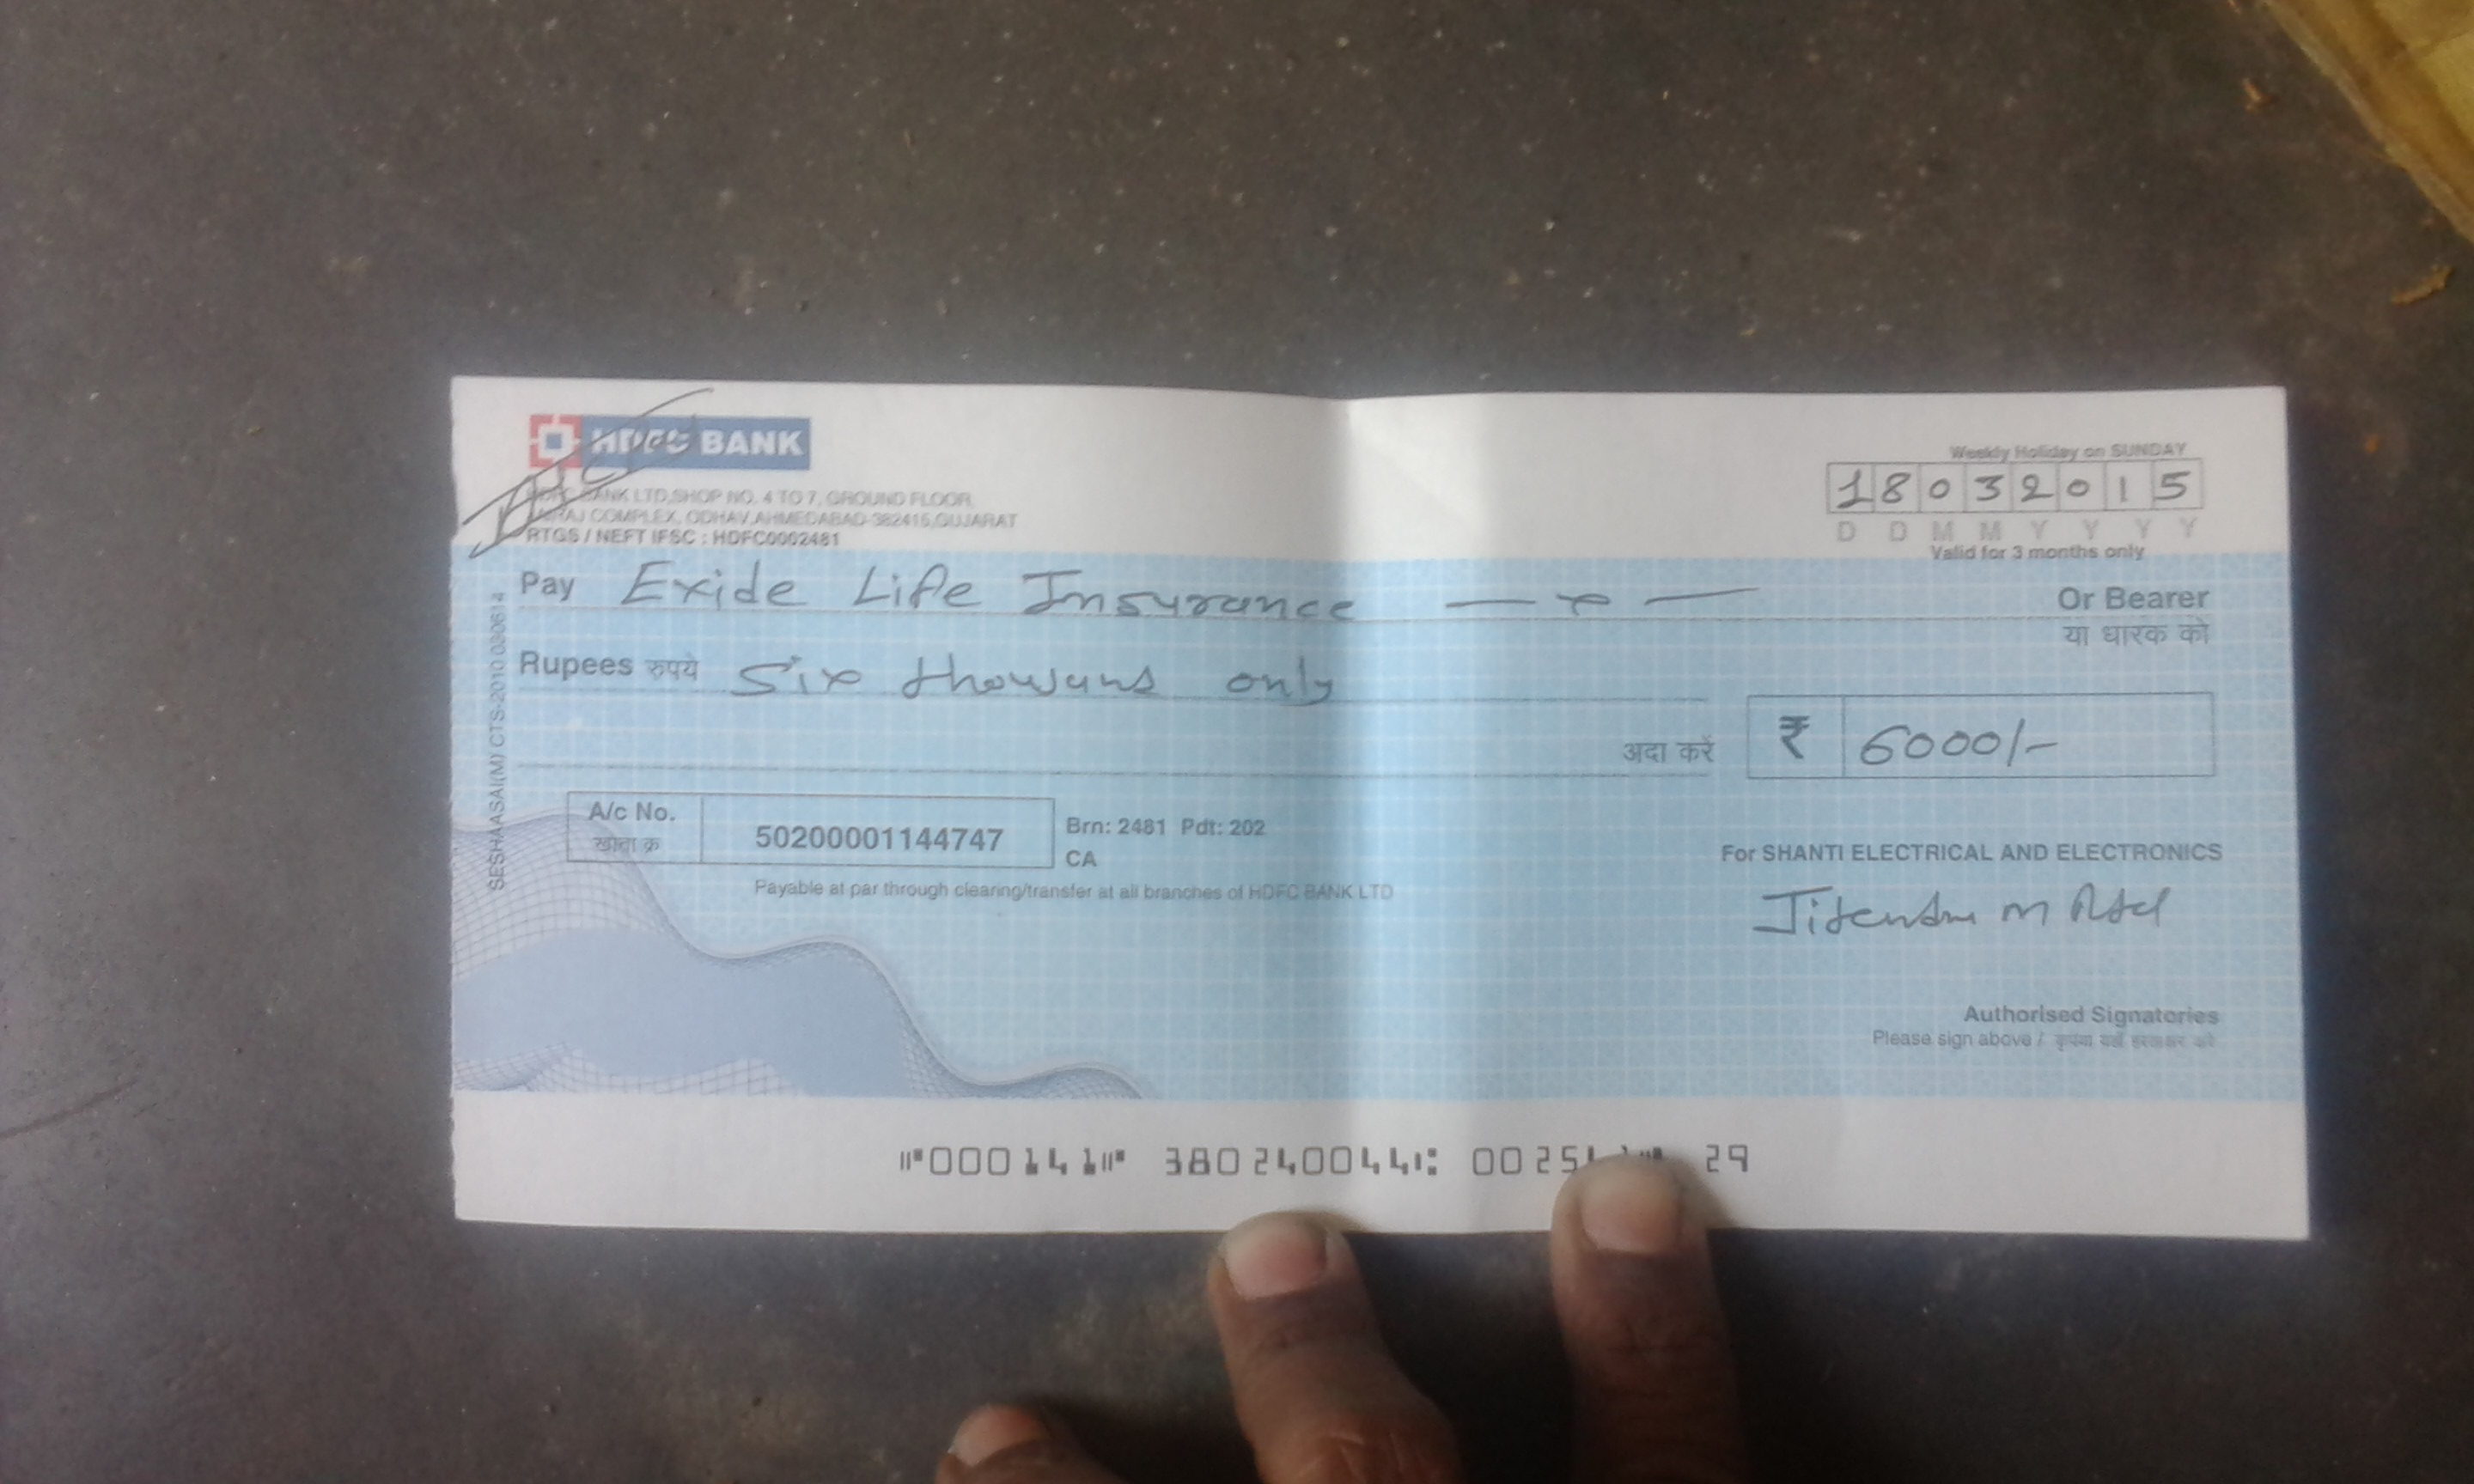 HDFC BANK
BANK LTD, SHOP NO. 4 TO 7, GROUND FLOOR,
COMPLEX, ODHAV, AHMEDABAD-382415, GUJARAT
RTGS / NEFT IFSC : HDFC0002481
Weekly Holiday on SUNDAY
18032015
D D M M Y Y Y Y
Valid for 3 months only
Pay Exide Life Insurance
Or Bearer
या धारक को
Rupees रुपये Six thousans only
अदा करें ₹ 6000/-
A/c No.
खाता क्र
50200001144747
Brn: 2481 Pdt: 202
CA
Payable at par through clearing/transfer at all branches of HDFC BANK LTD
For SHANTI ELECTRICAL AND ELECTRONICS
Authorised Signatories
Please sign above /
SESHAASAI(M) CTS-2010 030614
⑈000141⑈ 380240044⑆ 29